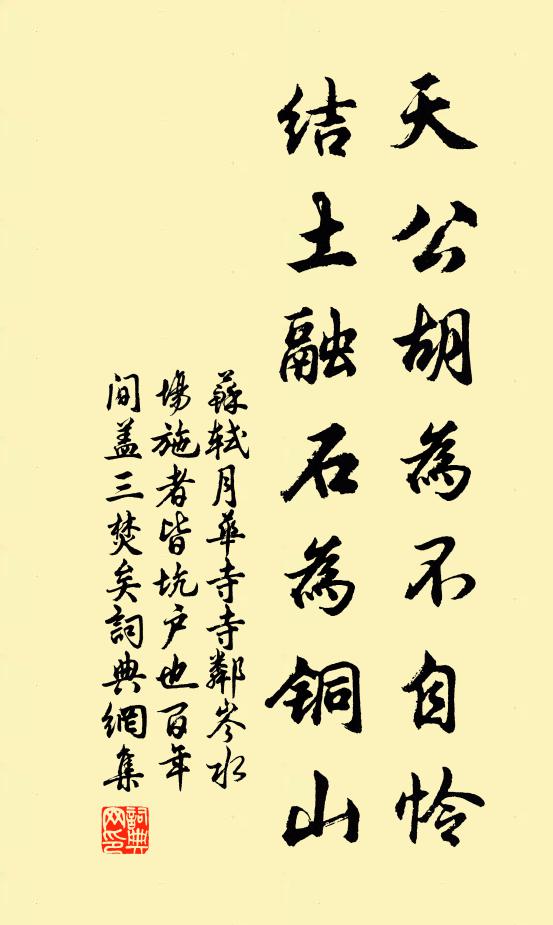 天公胡為不自怜
结土融石為铜山
蘇轼月華寺寺鄰岑水
場施者皆坑户也百年
间盖三焚矣詞典網集
詞典网印